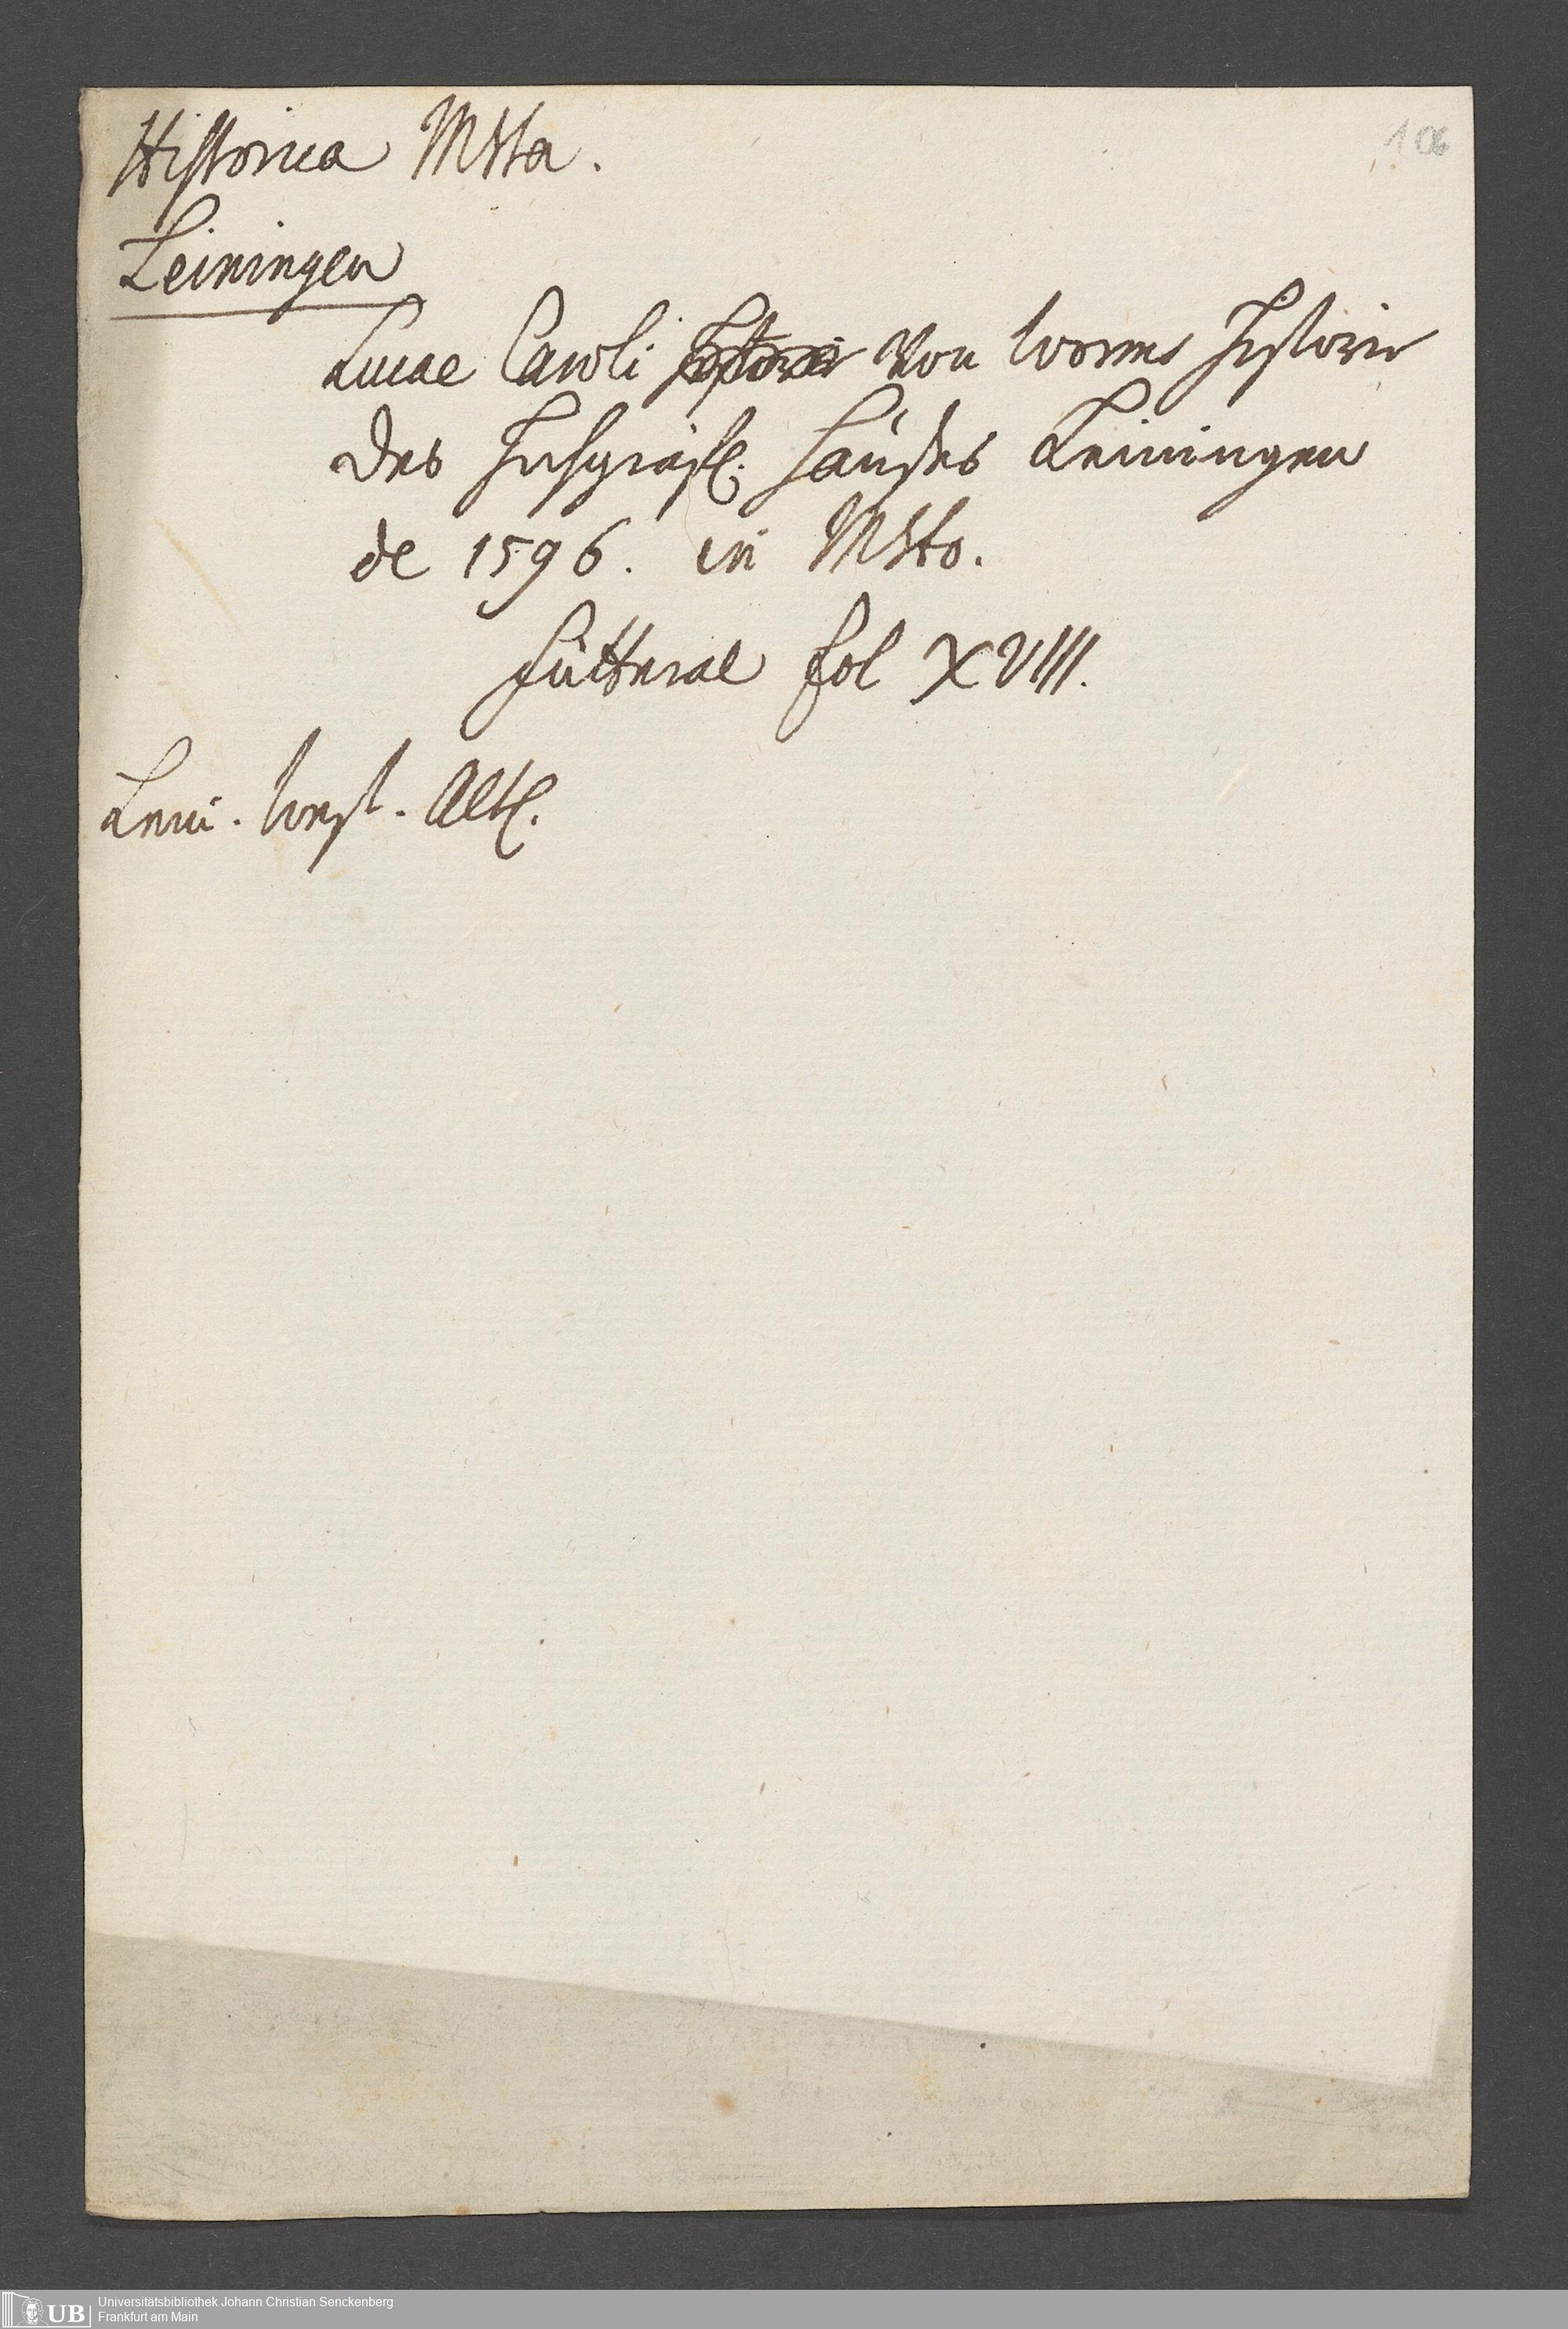 106
Historica MSta.
Leiningen
Lucae Caroli Historie von Worms Historie
des Hochgräfl. Hauses Leiningen
de 1596. in MSto.
Futteral fol XVIII.
Universitätsbibliothek Johann Christian Senckenberg
Frankfurt am Main
UB